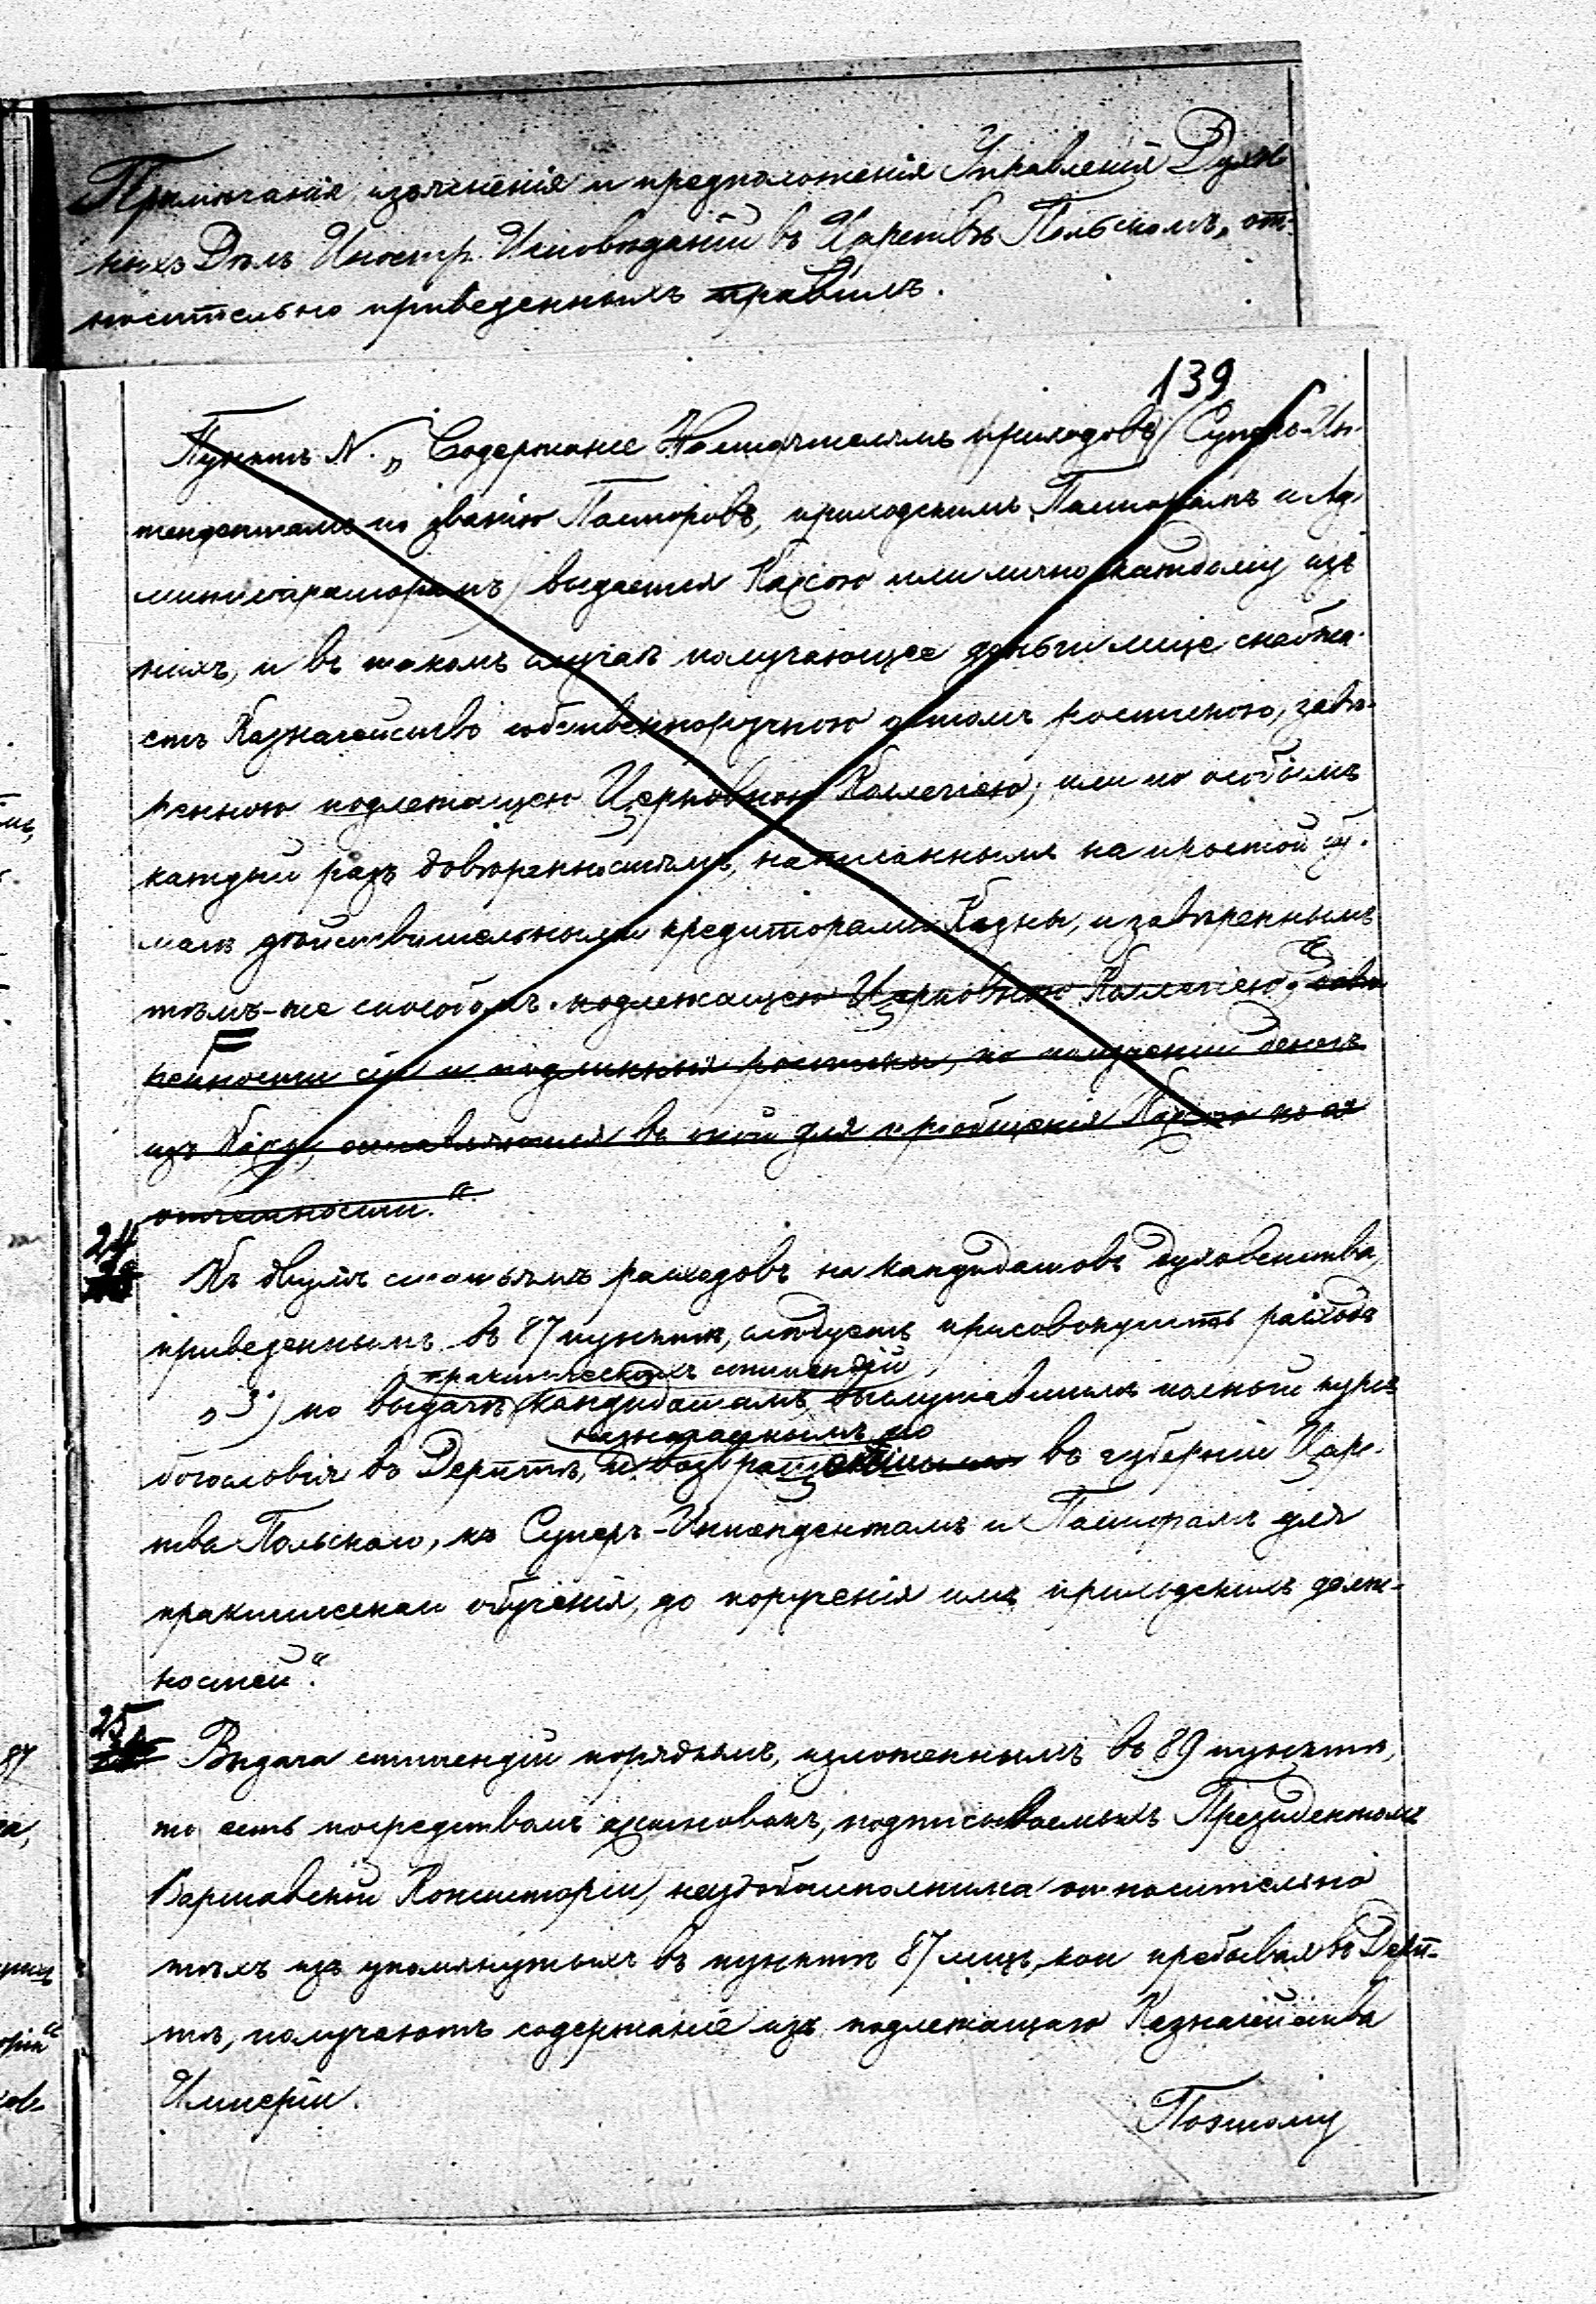 Примѣчанія, изъясненія и предположенія Управленія Духов-
ныхъ Дѣлъ Иностр. Исповѣданій въ Царствѣ Польскомъ, от-
носительно приведенныхъ правилъ.
139
Пунктъ N. „Содержаніе Настоятелямъ приходовъ (Суперъ-Ин-
тендентамъ по званію Пасторовъ, приходскимъ Пасторамъ и Ад-
министраторамъ) выдается Кассою или лично каждому изъ
нихъ, и въ такомъ случаѣ получающее деньги лице снабжа-
етъ Казначейство собственноручною о томъ роспискою, завѣ-
ренною подлежащею Церковною Коллегіею, или по особымъ
каждый разъ довѣренностямъ, написаннымъ на простой бу-
магѣ дѣйствительными кредиторами Казны, и завѣреннымъ
тѣмъ-же способомъ. подлежащею Церковною Коллегіею; довѣ
ренности сіи и подлинныя росписки, по полученіи денегъ
изъ Кассы, оставляются въ оной для пріобщенія Кассою къ ея
отчетности.“
24
Къ двумъ статьямъ расходовъ на кандидатовъ духовенства,
приведеннымъ въ 87 пунктѣ, слѣдуетъ присовокупить расходъ
практическихъ стипендій
„3) по выдачѣ кандидатамъ, выслушавшимъ полный курсъ
назначаемымъ по
богословія въ Дерптѣ, и возвращеніи въ губерніи Цар-
тва Польскаго, къ Суперъ-Интендентамъ и Пасторамъ для
практическаго обученія, до порученія имъ приходскихъ долж-
ностей“.
25
Выдача стипендій порядкомъ, изложеннымъ въ 89 пунктѣ,
то есть посредствомъ ассигновокъ, подписываемыхъ Президентомъ
Варшавской Консисторіи, неудобоисполнима относительно
тѣхъ изъ упомянутыхъ въ пунктѣ 87 лицъ, кои пребывая въ Дерп-
тѣ, получаютъ содержаніе изъ подлежащаго Казначейства
Имперіи.
Поэтому
87